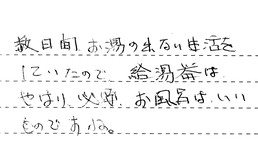 数日間 お湯の出ない生活を
していたので 給湯器は
やはり 必要 お風呂は いい
ものですね。